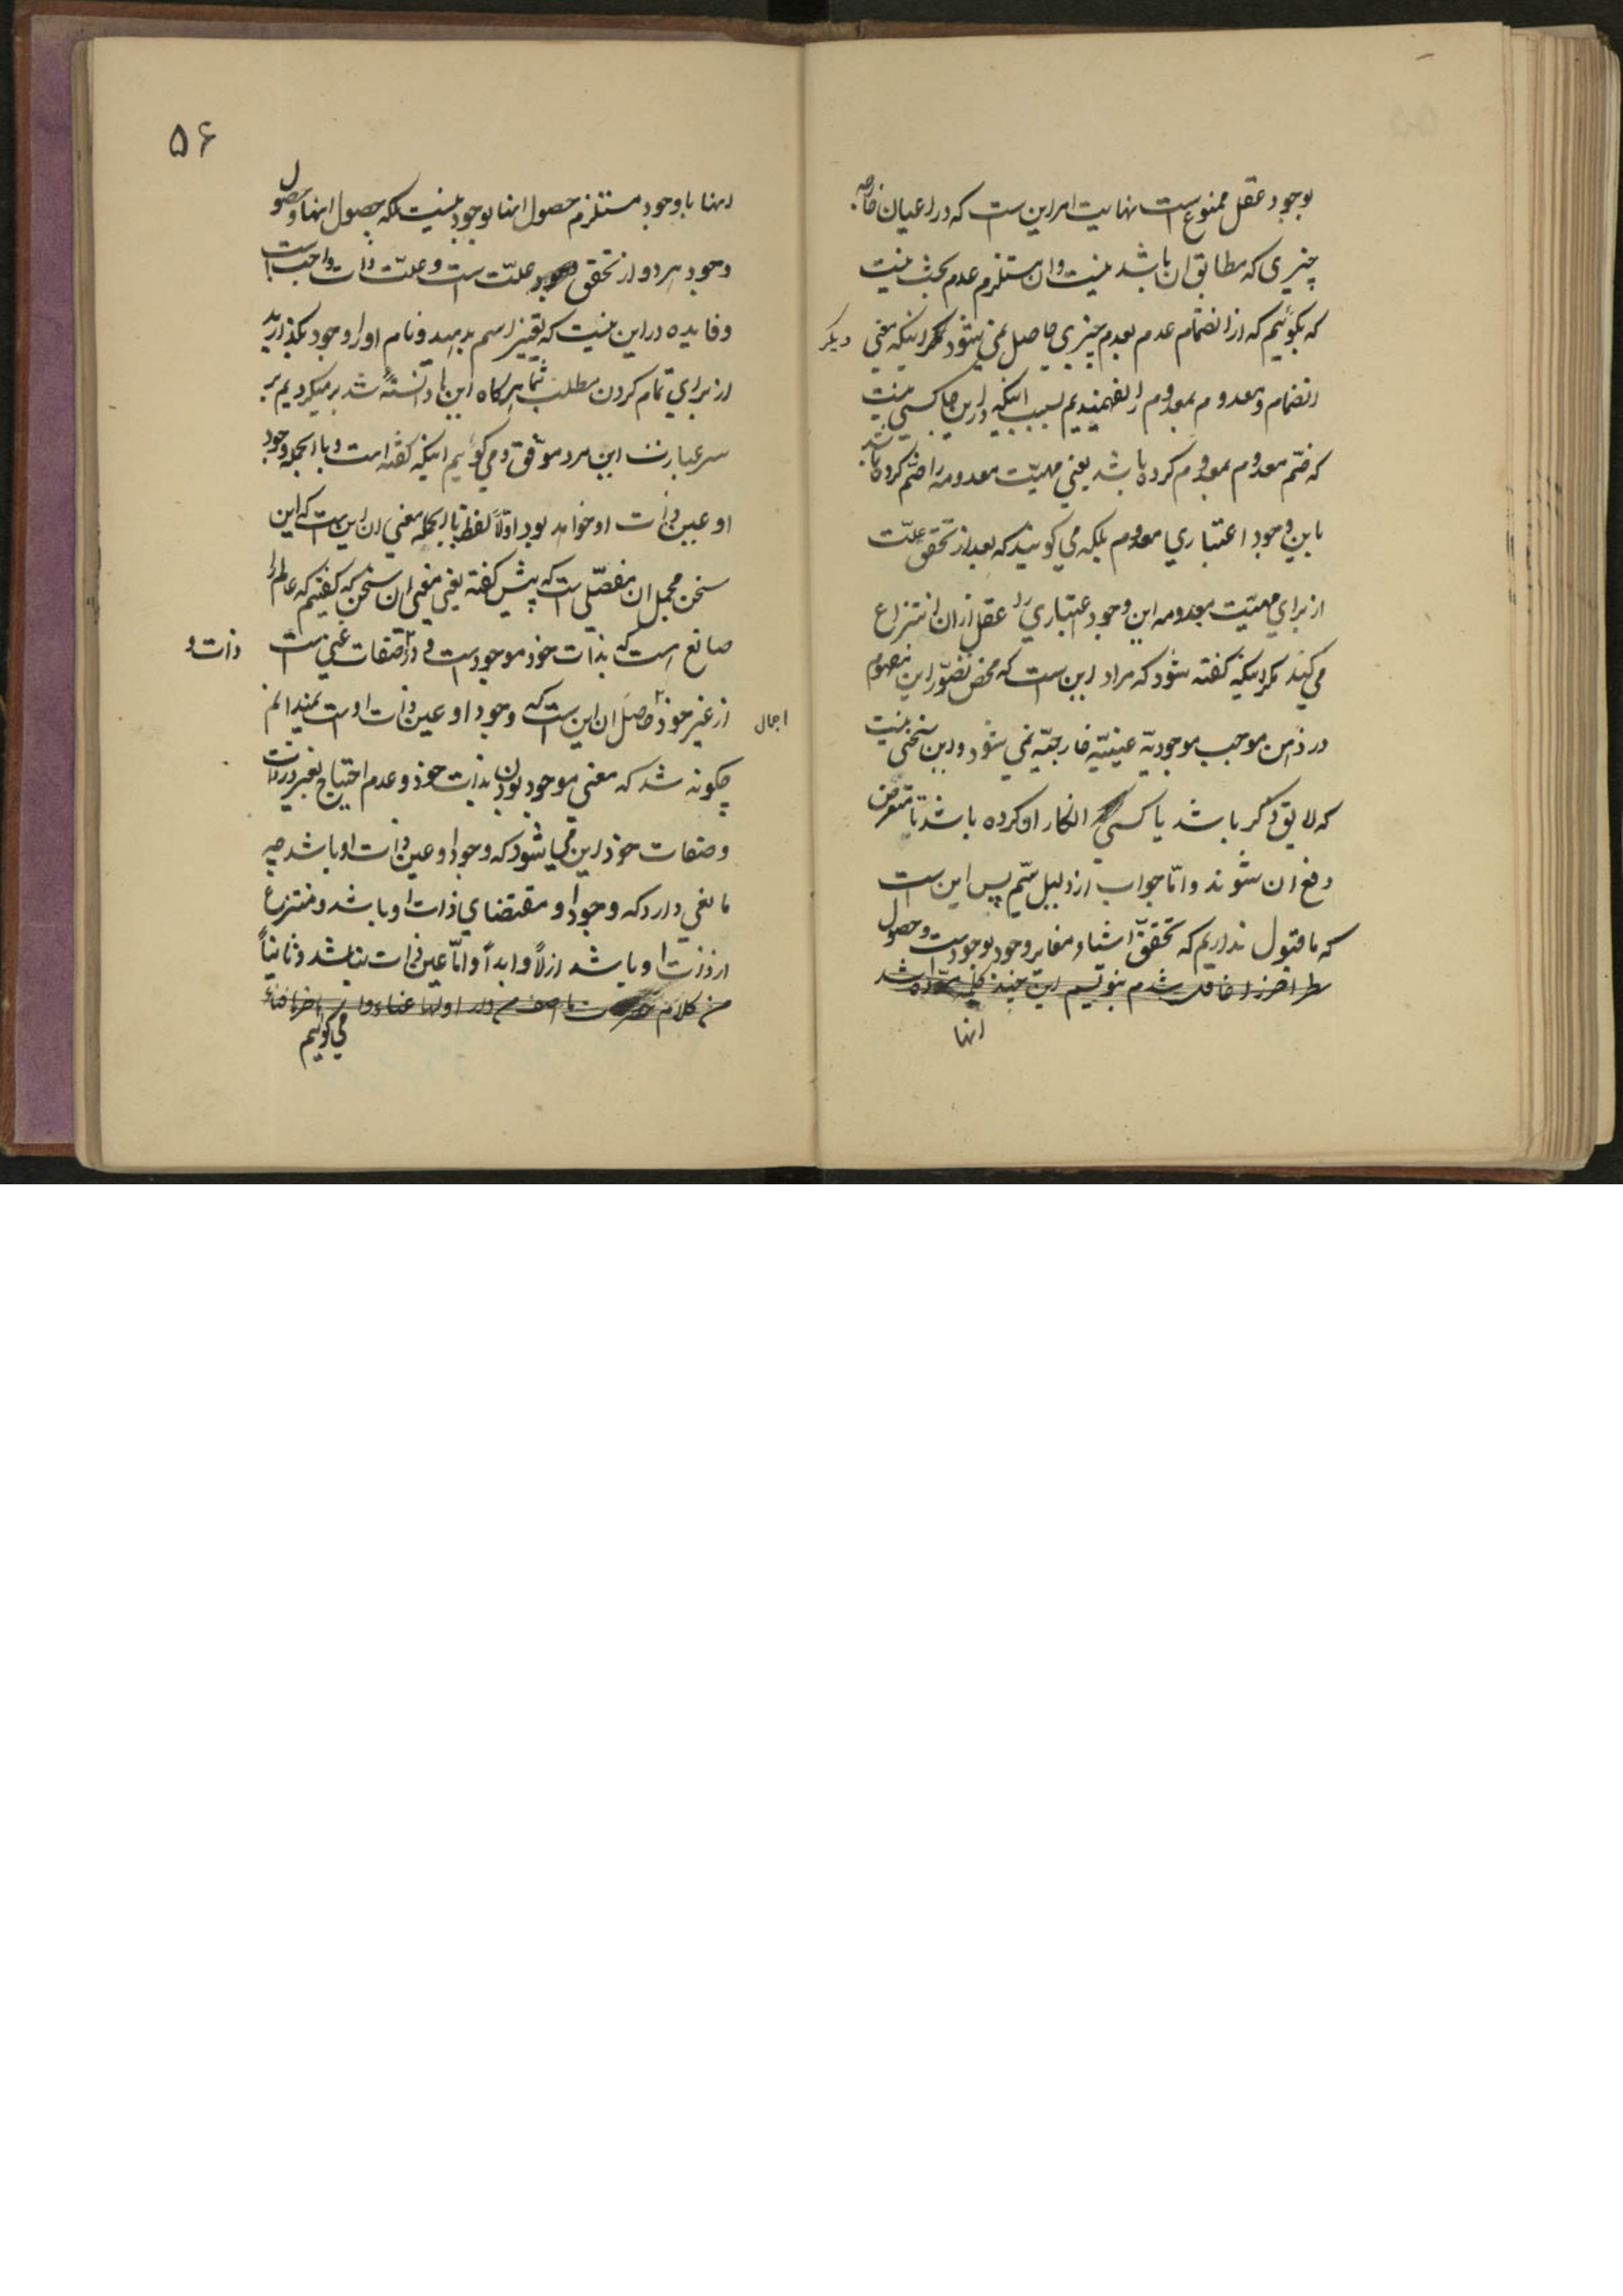 بوجود عقل ممنوع است نهایت امر این ست که در اعیان خارجه
چیزی که مطابق ان باشد نیست و ان مستلزم عدم بحث نیست
که بگوئیم که از انضمام عدم بعدم چیزی حاصل نمی شود مگر اینکه معنی دیگر
انضمام و معدوم بمعدوم را نفهمیدیم بسبب اینکه در این جا کسی نیست
که ضم معدوم بمعدوم کرده باشد یعنی مهیّت معدومه را ضم کرده باشد
باین وجود اعتباری معدوم بلکه می گویند که بعد از تحقق علّت
از برای مهیّت معدومه این وجود اعتباری را عقل از ان انتزاع
می کند مگر اینکه گفته شود که مراد این ست که محض تصوّر این مفهوم
در ذهن موجب موجودیّة عینیّة خارجیّه نمی شود و این سخنی نیست
که لایق ذکر باشد یا کسی انکار ان کرده باشد تا متعرض
دفع ان شوند و امّا جواب از دلیل سیّم پس این ست
که ما قبول نداریم که تحقق اشیاء مغایر وجود بوجود است و حصول
سطر اخر را غافل شدم بنویسم این چند کلمه نوشته شد
اینها
۵۶
اینها با وجود مستلزم حصول اینها بوجود نیست بلکه حصول اینها و حصول
وجود هر دو از تحقق علّت ست و علّت ذات واجب است
و فایده در این نیست که تغییر اسم بدهید و نام او را وجود بگذارید
از برای تمام کردن مطلب شما هرگاه این دانسته شد برمیگردیم بر
سر عبارت این مرد موفق و می گوئیم اینکه گفته است و بالجمله وجود
او عین ذات او خواهد بود اوّلاً لفظ بالجمله معنی ان این ست که این
سخن مجمل ان مفصّلی است که پیش گفته یعنی معنی ان سخن که گفتیم که عالم را
صانعی است که بذات خود موجود ست و در صفات غنی ست ذات و
از غیر خود حاصل ان این ست که وجود او عین ذات اوست نمیدانم اجمال
چگونه شد که معنی موجود بودن بذات خود و عدم احتیاج بغیر در ذات
و صفات خود این می شود که وجود او عین ذات او باشد چه
مانعی دارد که وجود او مقتضای ذات او باشد و منتزع
از ذات او باشد ازلاً و ابداً و امّا عین ذات نباشد و ثانیاً
می گوئیم